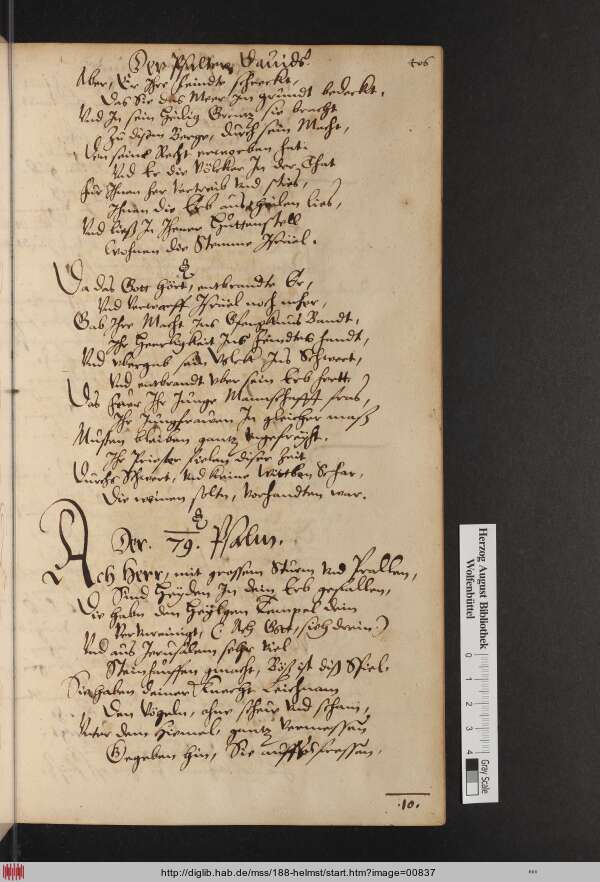 Der Psalter Dauids.
Aber, Er Ihre feindte schreckt,
Das Sie das Meer In grundt bedeckt.
Vnd In sein heilig Grentz sie bracht
Zu disem Berge, durch sein Macht,
Den seine Recht erworben hat:
Vnd Er die Völcker In der That
Für Ihnen her vertreib Vnd sties,
Ihnen die Erb austheilen lies,
Vnd ließ In Ihener Hüttenstell
Wohnen die Stemme Israel.
Da das Gott hört, entbrandte Er,
Vnd verwarff Israel noch mehr,
Gab Ihr Macht Ins Gfengknus Bandt,
Ihr Herrligkeit Ins feindtes handt,
Vnd vbergab sein Volck Ins Schwert,
Vnd entbrandt vber sein Erb hertt,
Das feur Ihr Junge Manschafft fras,
Ihr Jungfrawen In gleicher maß
Musten bleiben gantz vngefreyht.
Ihr Priester fielen diser Zeit
Durchs Schwert, Vnd keine Witben Schar,
Die weinen solte, vorhandten war.
Der. 79. Psalm.
Ach Herr, mit grossem Sturm Vnd Prallen,
Sind Heyden In dein Erb gefallen,
Die haben den Heyligen Tempel dein
Verunreinigt, (Ach Gott, sieh drein)
Vnd aus Jerusalem sehr viel
Steinhauffen gmacht, Böß ist diß Spiel.
Sie haben deiner Knecht Leichnam
Den Vögeln, ohne scheur Vnd scham,
Vnter dem Himel, gantz Vermessen
Gegeben hin, Sie auff zu fressen.
.10.
Herzog August Bibliothek
Wolfenbüttel
0 1 2 3 4
Gray Scale
http://diglib.hab.de/mss/188-helmst/start.htm?image=00837